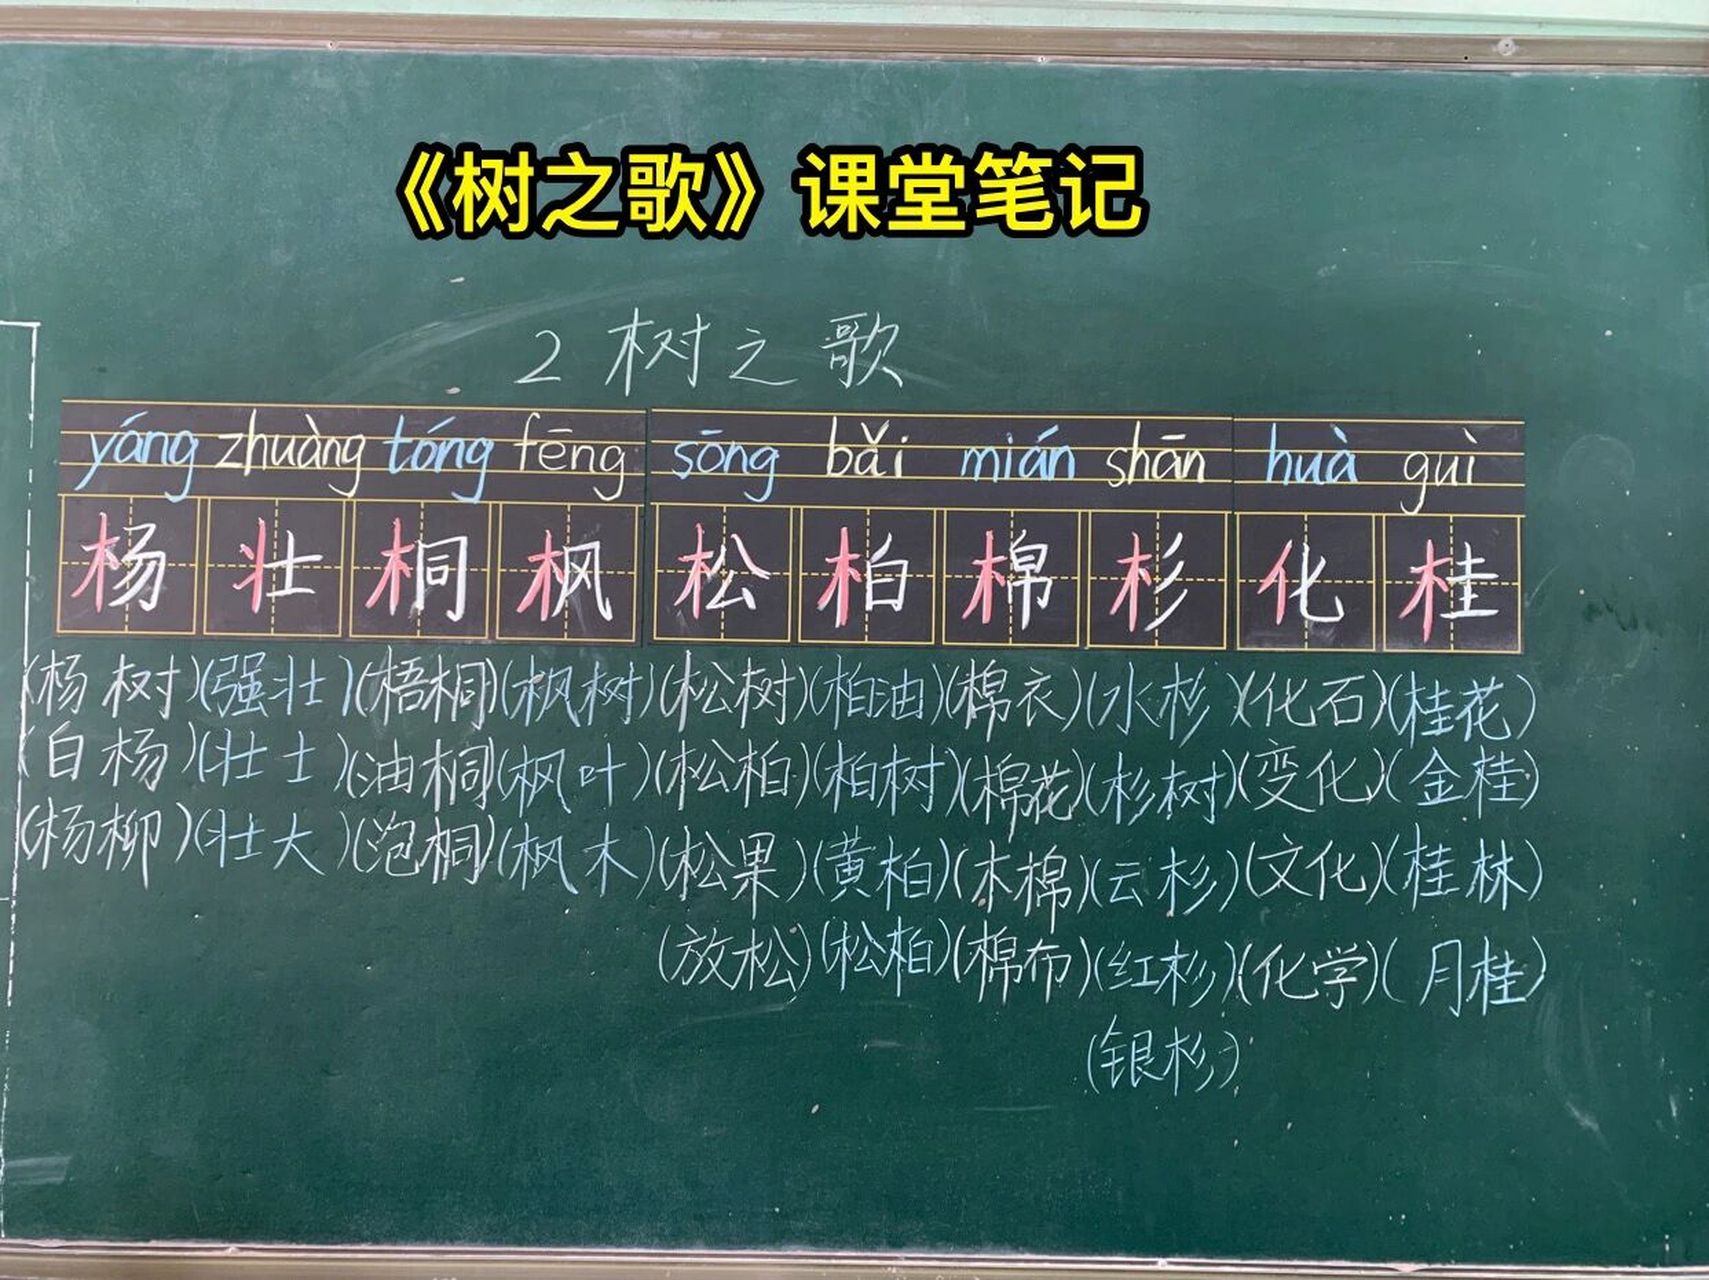 《树之歌》课堂笔记
2 树之歌
yáng zhuàng tóng fēng sōng bǎi mián shān huà guì
杨 壮 桐 枫 松 柏 棉 杉 化 桂
(杨树)(强壮)(梧桐)(枫树)(松树)(柏油)(棉衣)(水杉)(化石)(桂花)
(白杨)(壮士)(油桐)(枫叶)(松柏)(柏树)(棉花)(杉树)(变化)(金桂)
(杨柳)(壮大)(泡桐)(枫木)(松果)(黄柏)(木棉)(云杉)(文化)(桂林)
(放松)(松柏)(棉布)(红杉)(化学)(月桂)
(银杉)